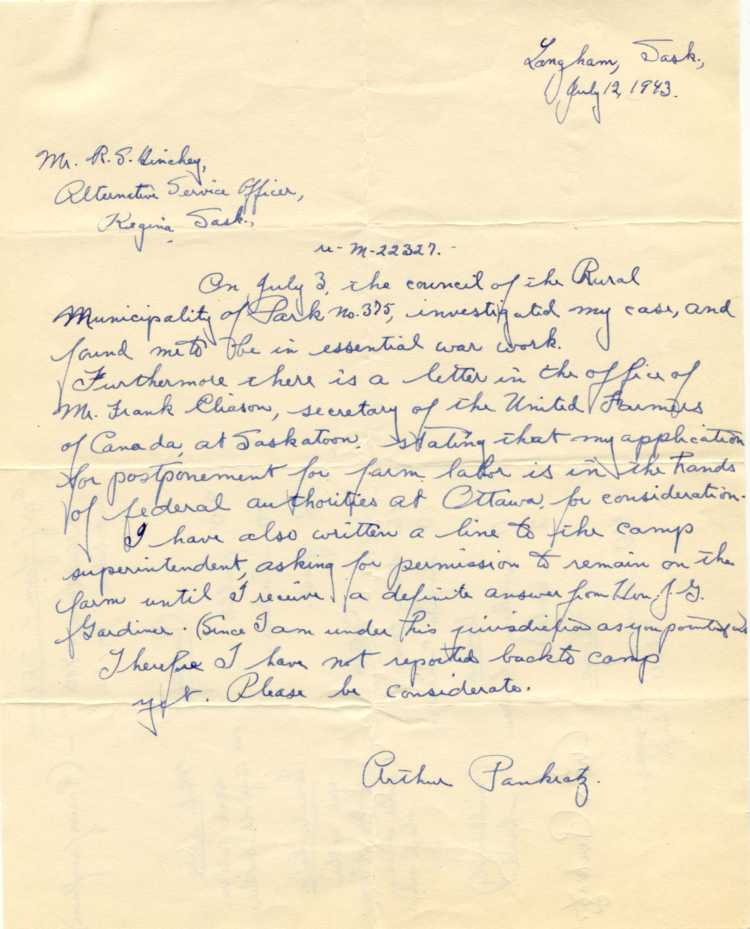 Langham, Sask.,
July 12, 1943.
Mr. R. S. Hinchey,
Alternative Service Officer,
Regina, Sask.,
M-22327.-
On July 3, the council of the Rural
Municipality of Park No. 375, investigated my case, and
found me to be in essential war work.
Furthermore there is a letter in the office of
Mr. Frank Eliason, secretary of the United Farmers
of Canada, at Saskatoon, stating that my application
for postponement for farm labor is in the hands
of federal authorities at Ottawa, for consideration.
I have also written a line to the camp
superintendent, asking for permission to remain on the
farm until I receive a definite answer from Hon. J. G.
Gardiner. (Since I am under his jurisdiction as you pointed out)
Therefore I have not reported back to camp
yet. Please be considerate.
Arthur Pankratz.